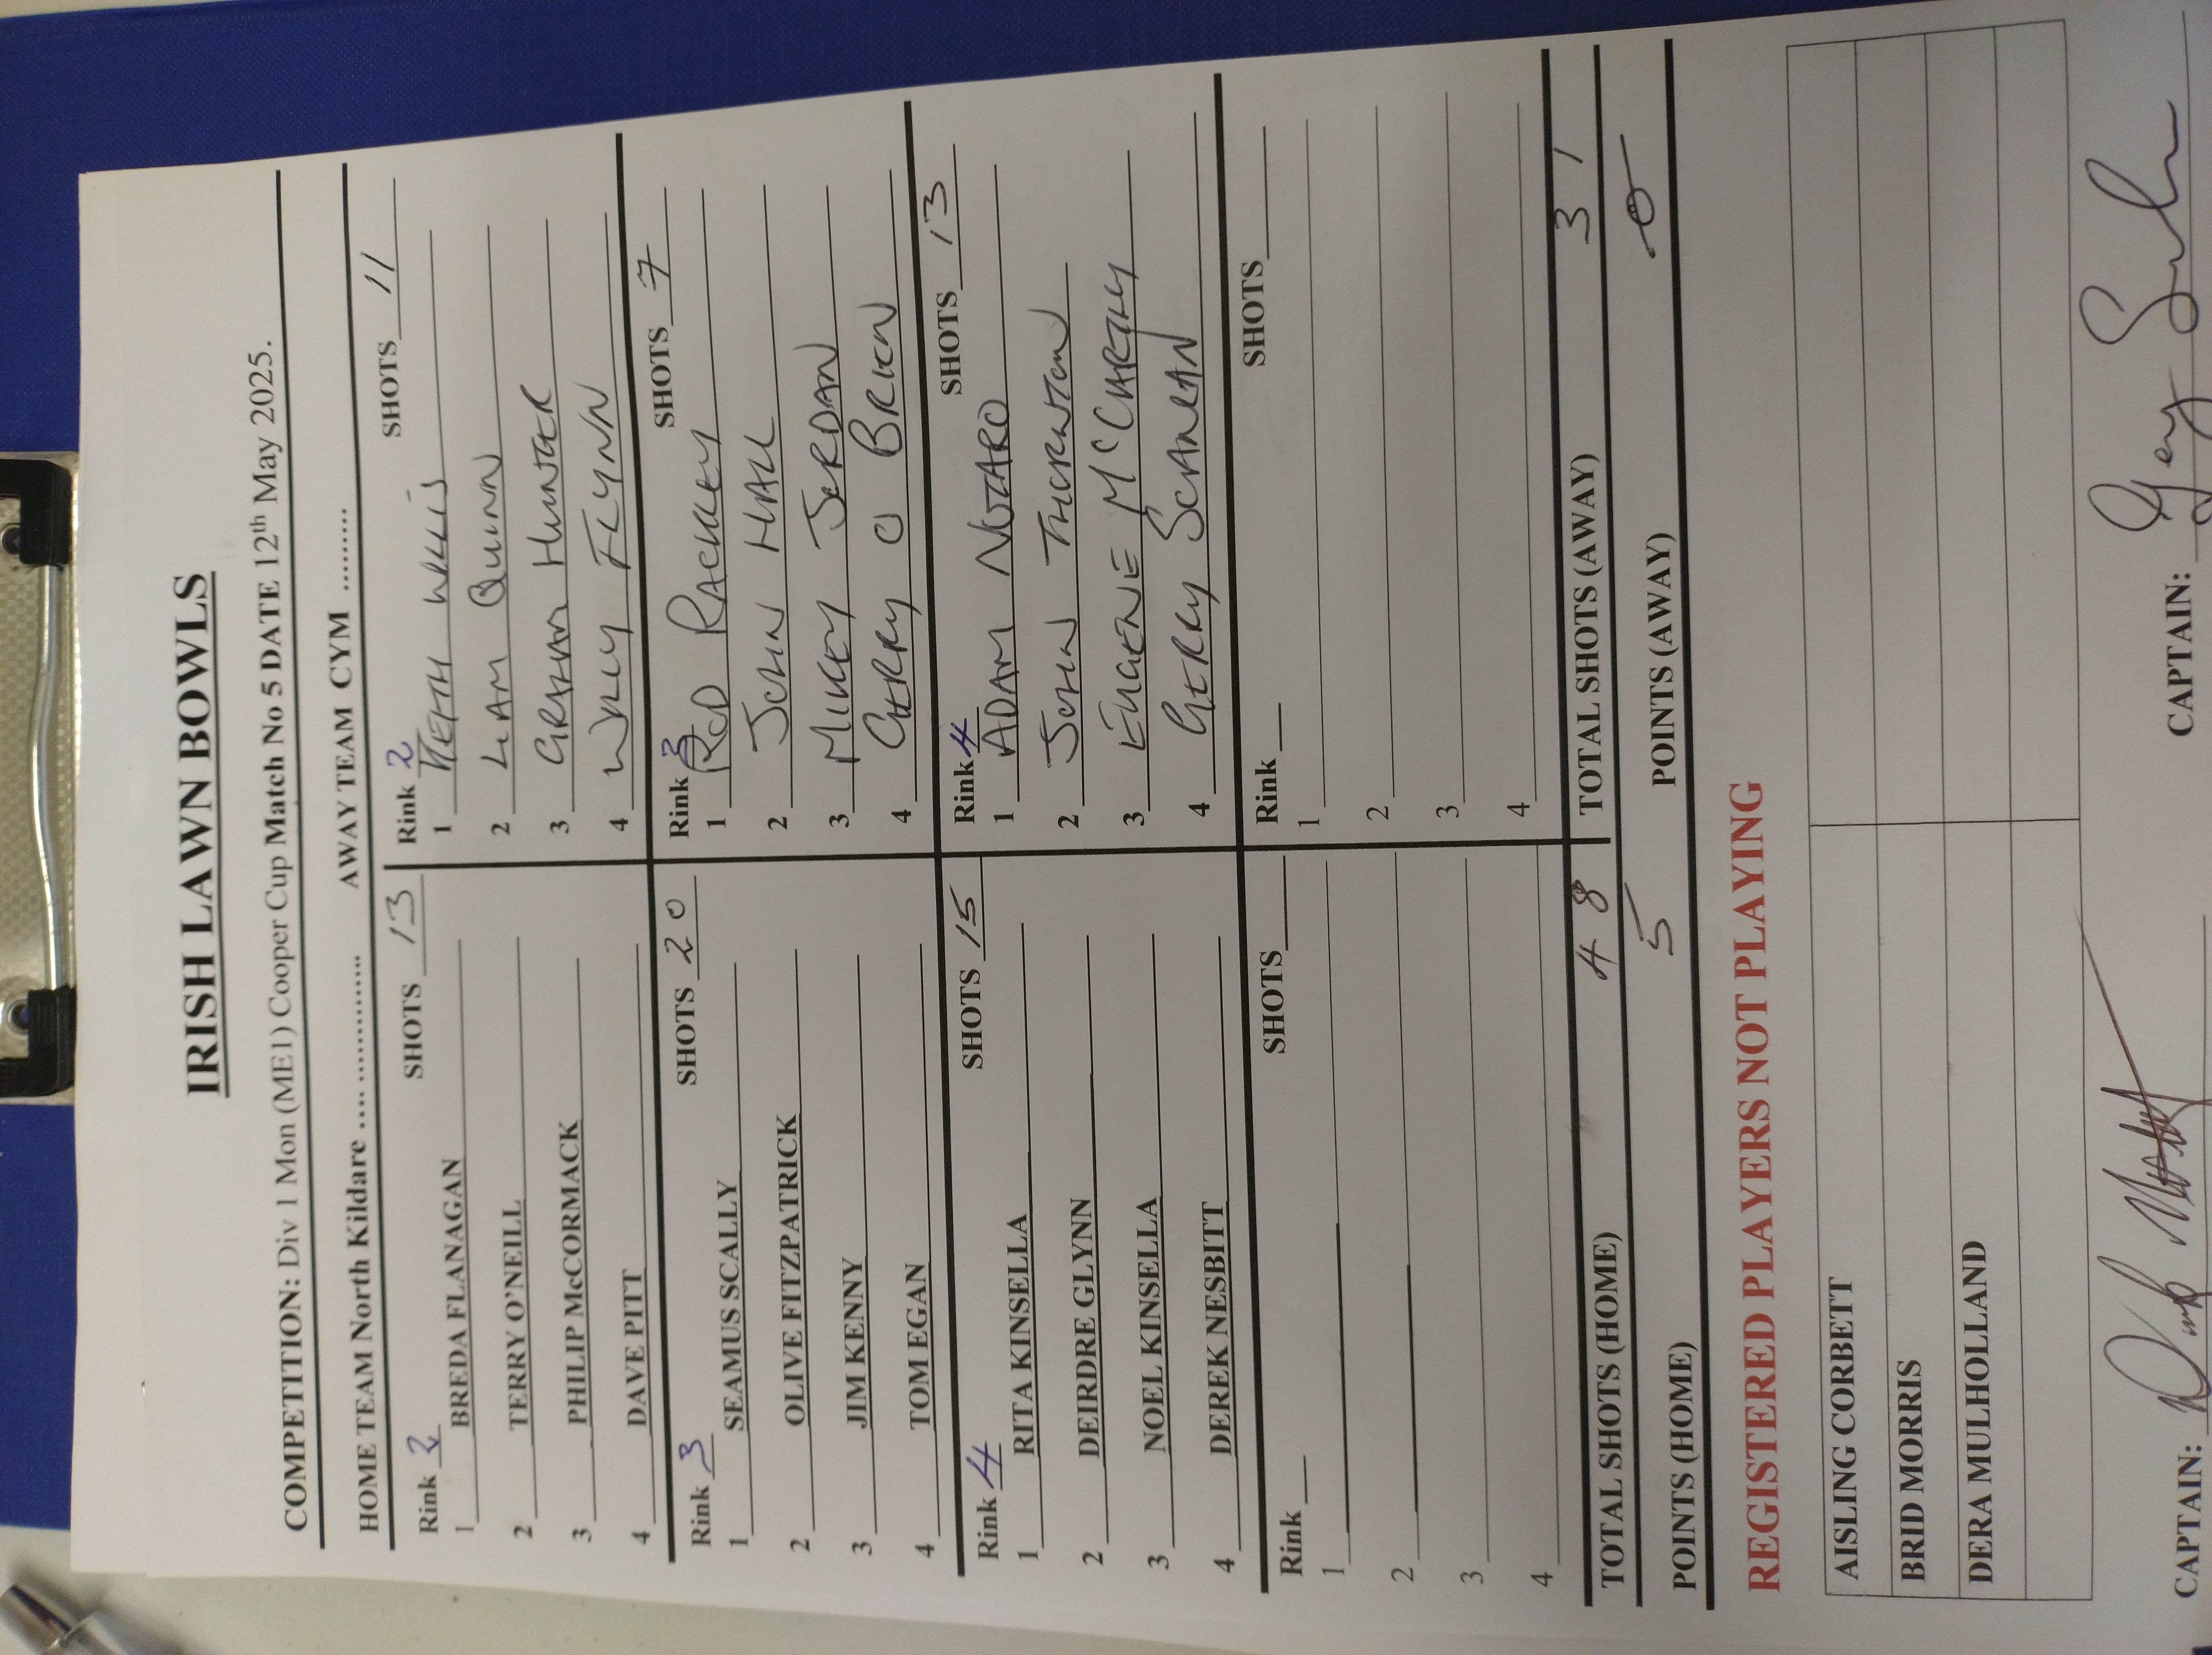 IRISH LAWN BOWLS
COMPETITION: Div 1 Mon (ME1) Cooper Cup Match No 5 DATE 12th May 2025.
HOME TEAM North Kildare .... ............. AWAY TEAM CYM .........
Rink 2 SHOTS 13 Rink 2 SHOTS 11
1 BREDA FLANAGAN 1 WILLIS
2 TERRY O'NEILL 2 LIAM QUINN
3 PHILIP McCORMACK 3 GRAHAM HUNTER
4 DAVE PITT 4 WILLY FLYNN
Rink 3 SHOTS 20 Rink 3 SHOTS 7
1 SEAMUS SCALLY 1 ROD RACKLEY
2 OLIVE FITZPATRICK 2 JOHN HALL
3 JIM KENNY 3 MICKEY JORDAN
4 TOM EGAN 4 GERRY O BRIEN
Rink 4 SHOTS 15 Rink 4 SHOTS 13
1 RITA KINSELLA 1 ADAM NOTARO
2 DEIRDRE GLYNN 2 JOHN THORNTON
3 NOEL KINSELLA 3 EUGENE McCARTHY
4 DEREK NESBITT 4 GERRY SCANLAN
Rink SHOTS Rink SHOTS
1 1
2 2
3 3
4 4
TOTAL SHOTS (HOME) 48 TOTAL SHOTS (AWAY) 31
POINTS (HOME) 5 POINTS (AWAY) 0
REGISTERED PLAYERS NOT PLAYING
AISLING CORBETT
BRID MORRIS
DERA MULHOLLAND
CAPTAIN: CAPTAIN: